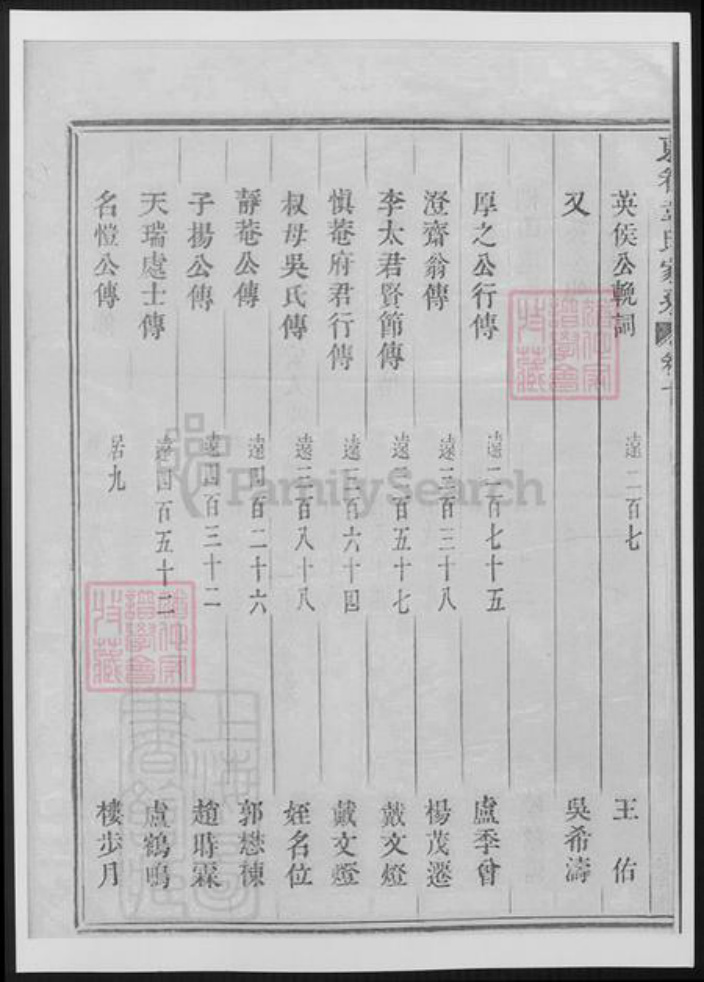 英侯公輓詞 遠二百七 王佑
又 吳希濤
厚之公行傳 遠二百七十五 盧季曾
澄齋翁傳 遠三百三十八 楊茂遷
李太君賢節傳 遠三百五十七 戴文燈
慎菴府君行傳 遠三百六十四 戴文燈
叔母吳氏傳 遠三百八十八 姪名位
靜菴公傳 遠四百二十六 郭懋棟
子揚公傳 遠四百三十二 趙時霖
天瑞處士傳 遠四百五十二 盧鶴鳴
名愷公傳 居九 樓步月
FamilySearch